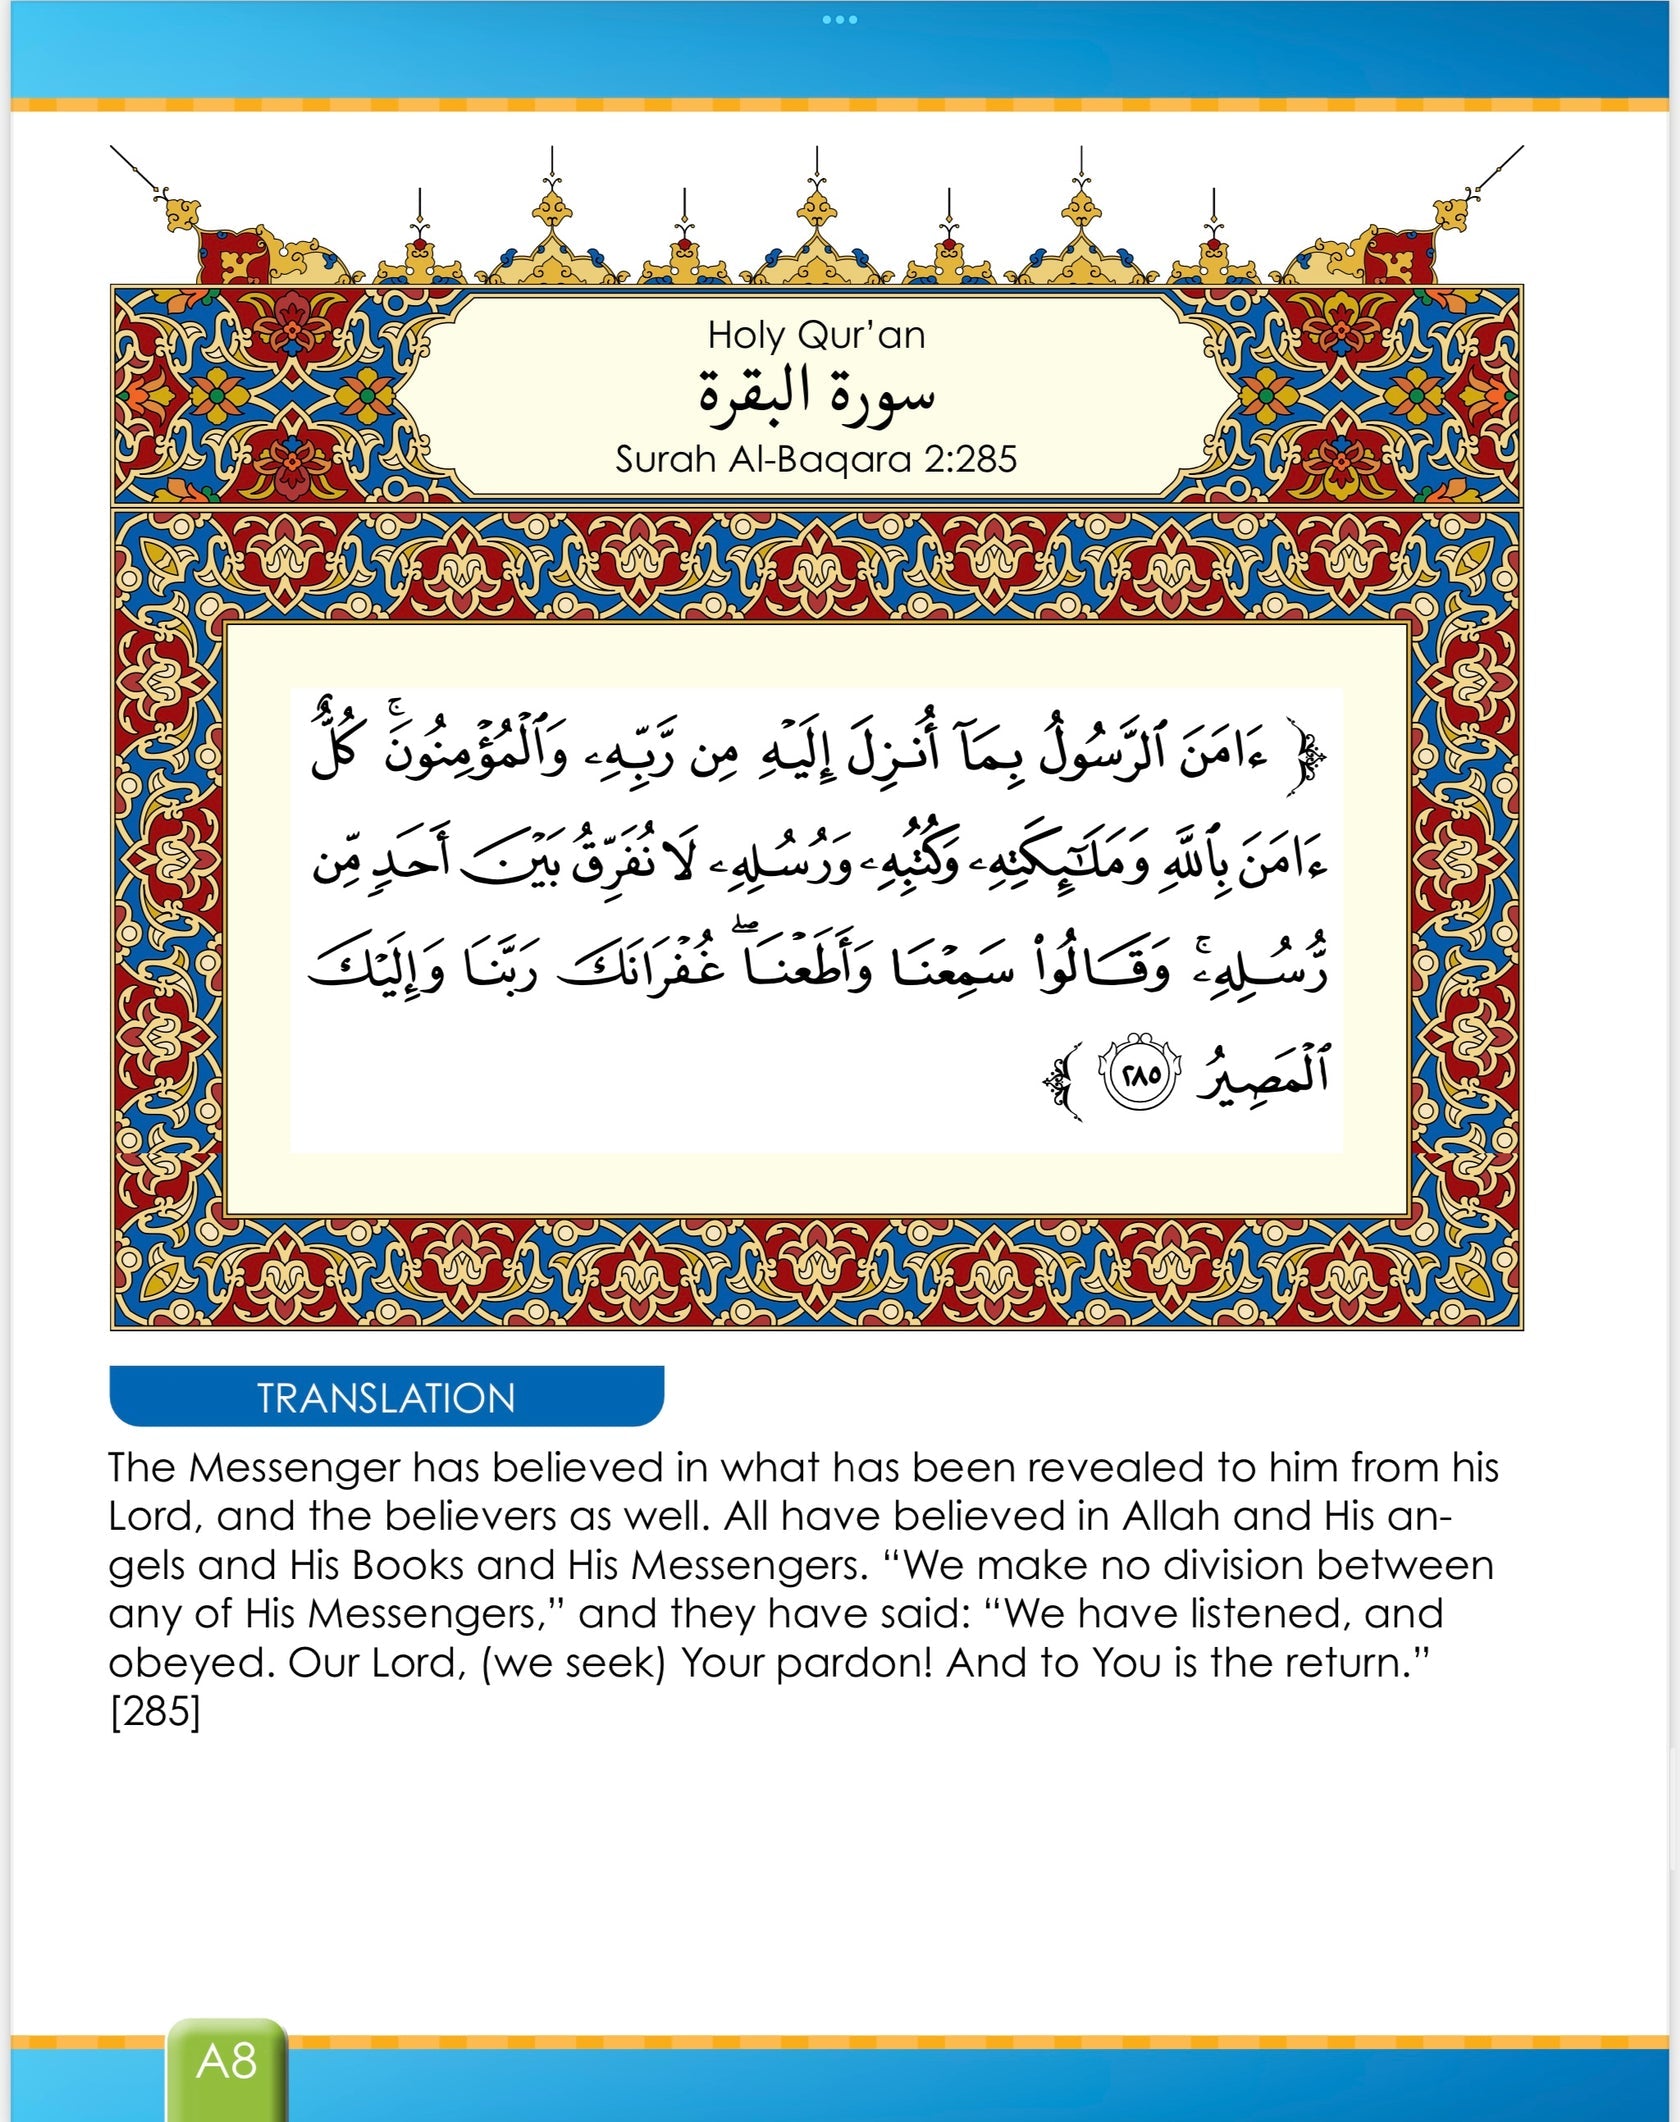 Holy Qur’an
سورة البقرة
Surah Al-Baqara 2:285
﴿ ءَامَنَ ٱلرَّسُولُ بِمَآ أُنزِلَ إِلَيْهِ مِن رَّبِّهِۦ وَٱلْمُؤْمِنُونَ ۚ كُلٌّ
ءَامَنَ بِٱللَّهِ وَمَلَـٰٓئِكَتِهِۦ وَكُتُبِهِۦ وَرُسُلِهِۦ لَا نُفَرِّقُ بَيْنَ أَحَدٍ مِّن
رُّسُلِهِۦ ۚ وَقَالُوا۟ سَمِعْنَا وَأَطَعْنَا ۖ غُفْرَانَكَ رَبَّنَا وَإِلَيْكَ
ٱلْمَصِيرُ ٢٨٥ ﴾
TRANSLATION
The Messenger has believed in what has been revealed to him from his
Lord, and the believers as well. All have believed in Allah and His an-
gels and His Books and His Messengers. “We make no division between
any of His Messengers,” and they have said: “We have listened, and
obeyed. Our Lord, (we seek) Your pardon! And to You is the return.”
[285]
A8